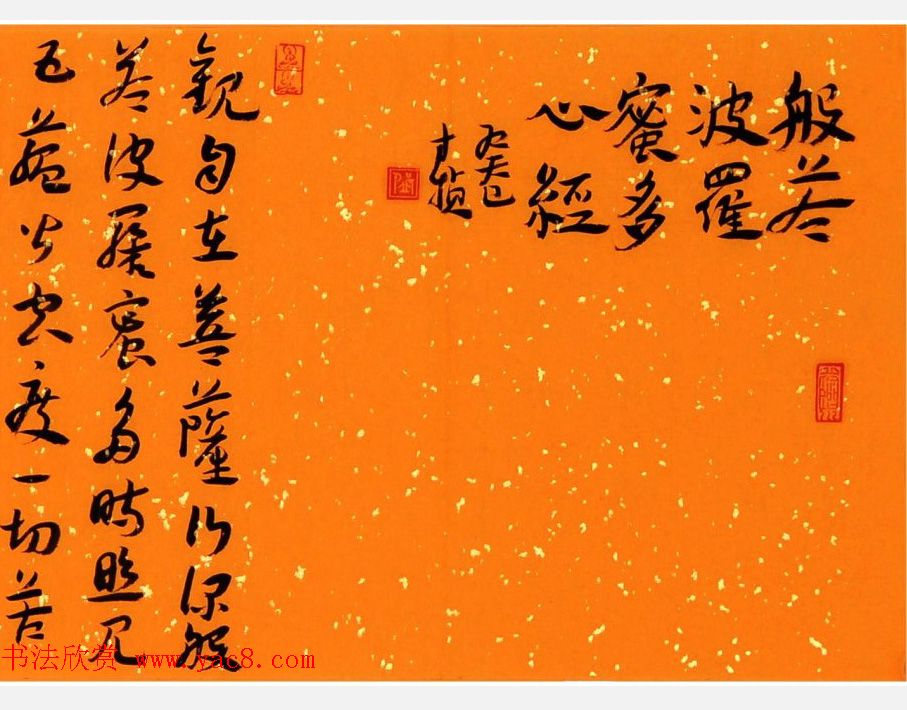 般若
波羅
蜜多
心經
觀自在菩薩行深般
若波羅蜜多時照見
五蘊皆空度一切苦
书法欣赏 www.yac8.com